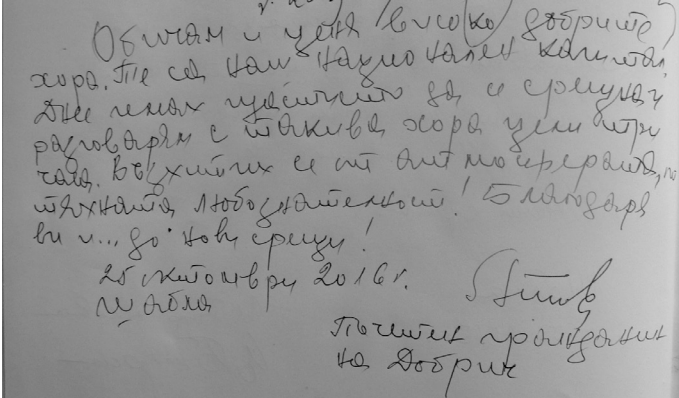 Обичам и ценя високо добрите
хора. Те са наш национален капитал.
Днес имах щастието да се срещна и
разговарям с такива хора цели три
часа. Възхитих се от атмосферата,
тяхната любознателност! Благодаря
ви и... до нови срещи!
25 октомври 2016 г.
Шабла
Почетен гражданин
на Добрич